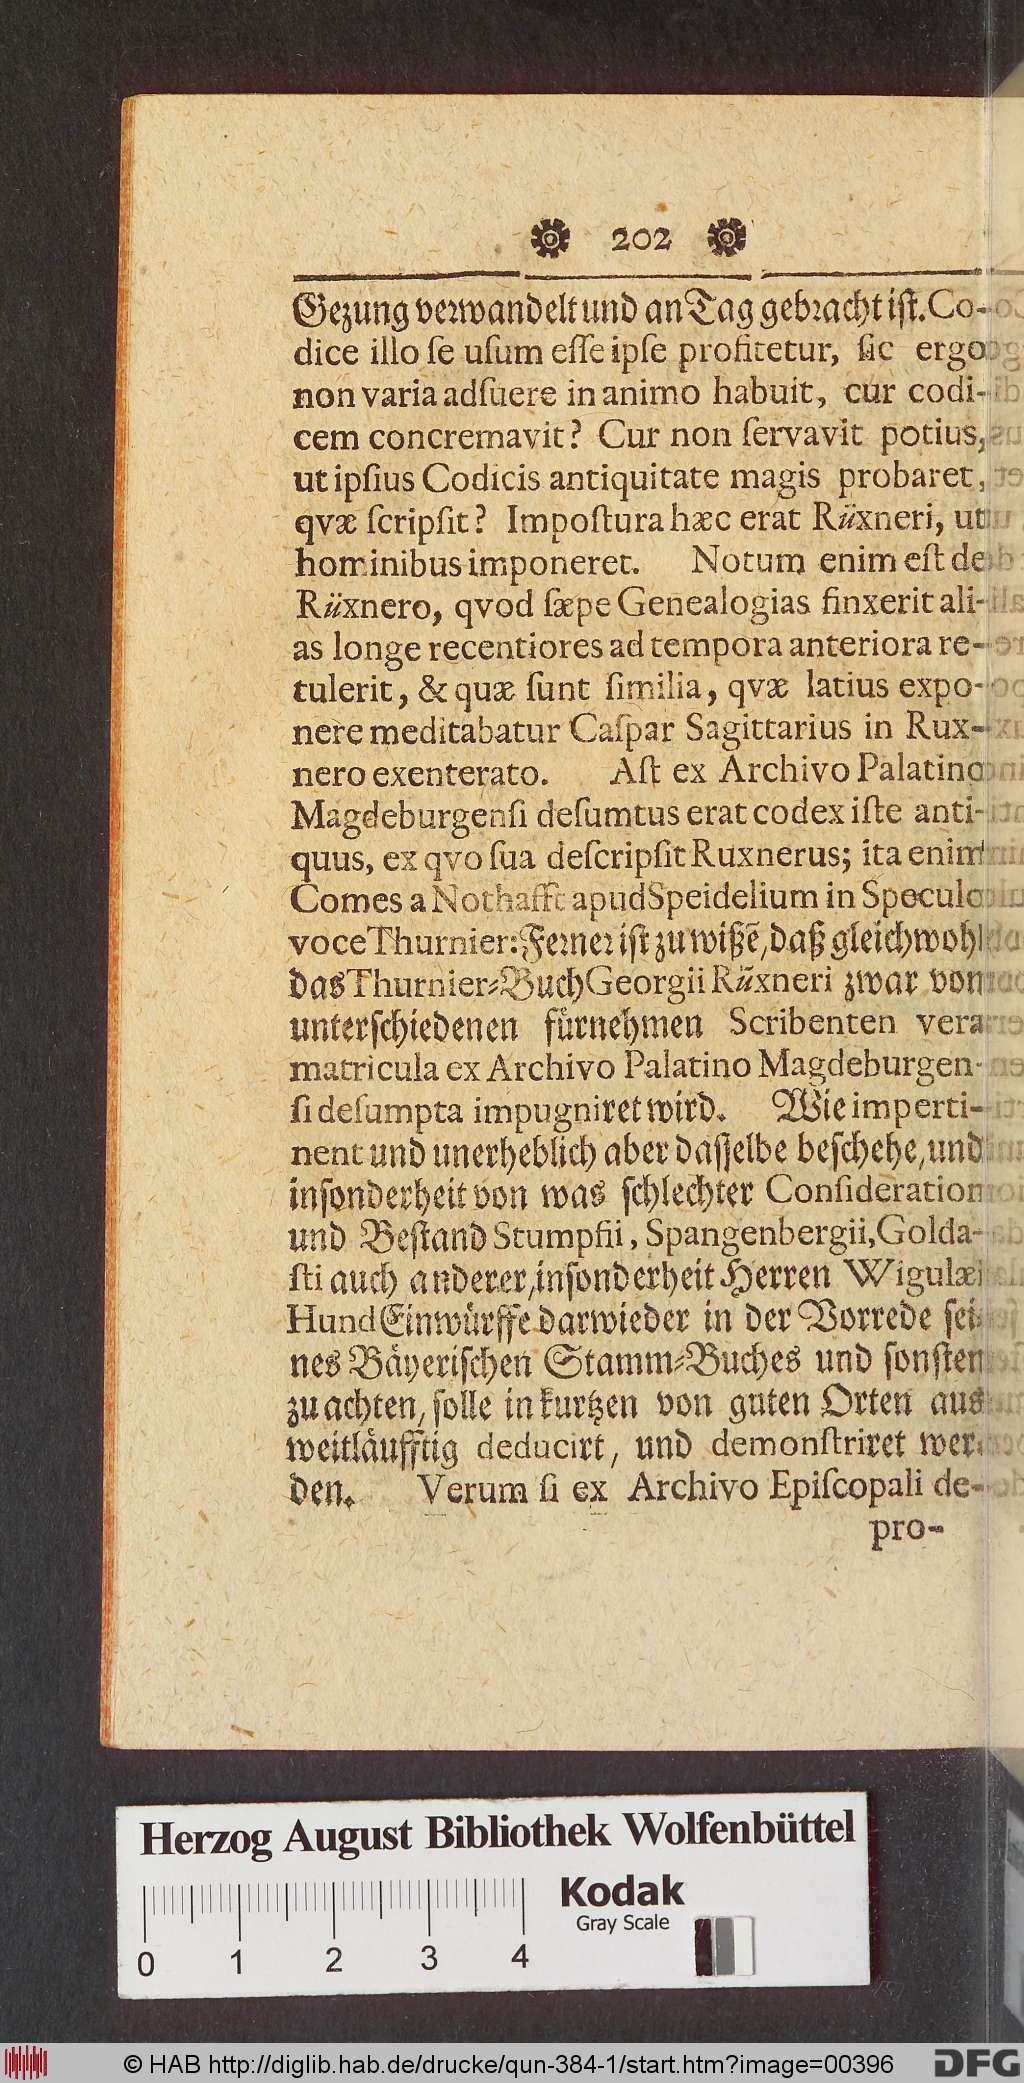 202
Gezung verwandelt und an Tag gebracht ist. Co-
dice illo ſe uſum eſſe ipſe profitetur, ſic ergo
non varia adſuere in animo habuit, cur codi-
cem concremavit? Cur non ſervavit potius,
ut ipſius Codicis antiquitate magis probaret,
qvæ ſcripſit? Impoſtura hæc erat Rüxneri, ut
hominibus imponeret. Notum enim eſt de
Rüxnero, qvod ſæpe Genealogias finxerit ali-
as longe recentiores ad tempora anteriora re-
tulerit, & quæ ſunt ſimilia, qvæ latius expo-
nere meditabatur Caſpar Sagittarius in Rux-
nero exenterato. Aſt ex Archivo Palatino
Magdeburgenſi deſumtus erat codex iſte anti-
quus, ex qvo ſua deſcripſit Ruxnerus; ita enim
Comes a Nothafft apud Speidelium in Speculo
voce Thurnier: Ferner iſt zu wißẽ, daß gleichwohl
das Thurnier-Buch Georgii Rüxneri zwar von
unterſchiedenen fürnehmen Scribenten vera
matricula ex Archivo Palatino Magdeburgen-
ſi deſumpta impugniret wird. Wie imperti-
nent und unerheblich aber daſſelbe beſchehe, und
inſonderheit von was ſchlechter Conſideration
und Beſtand Stumpfii, Spangenbergii, Golda-
ſti auch anderer, inſonderheit Herren Wigulæi
Hund Einwürffe darwieder in der Vorrede ſei-
nes Bäyeriſchen Stamm-Buches und ſonſten
zu achten, ſolle in kurtzen von guten Orten aus
weitläufftig deducirt, und demonſtriret wer-
den. Verum ſi ex Archivo Epiſcopali de-
pro-
Herzog August Bibliothek Wolfenbüttel
Kodak
Gray Scale
0 1 2 3 4
© HAB http://diglib.hab.de/drucke/qun-384-1/start.htm?image=00396
DFG